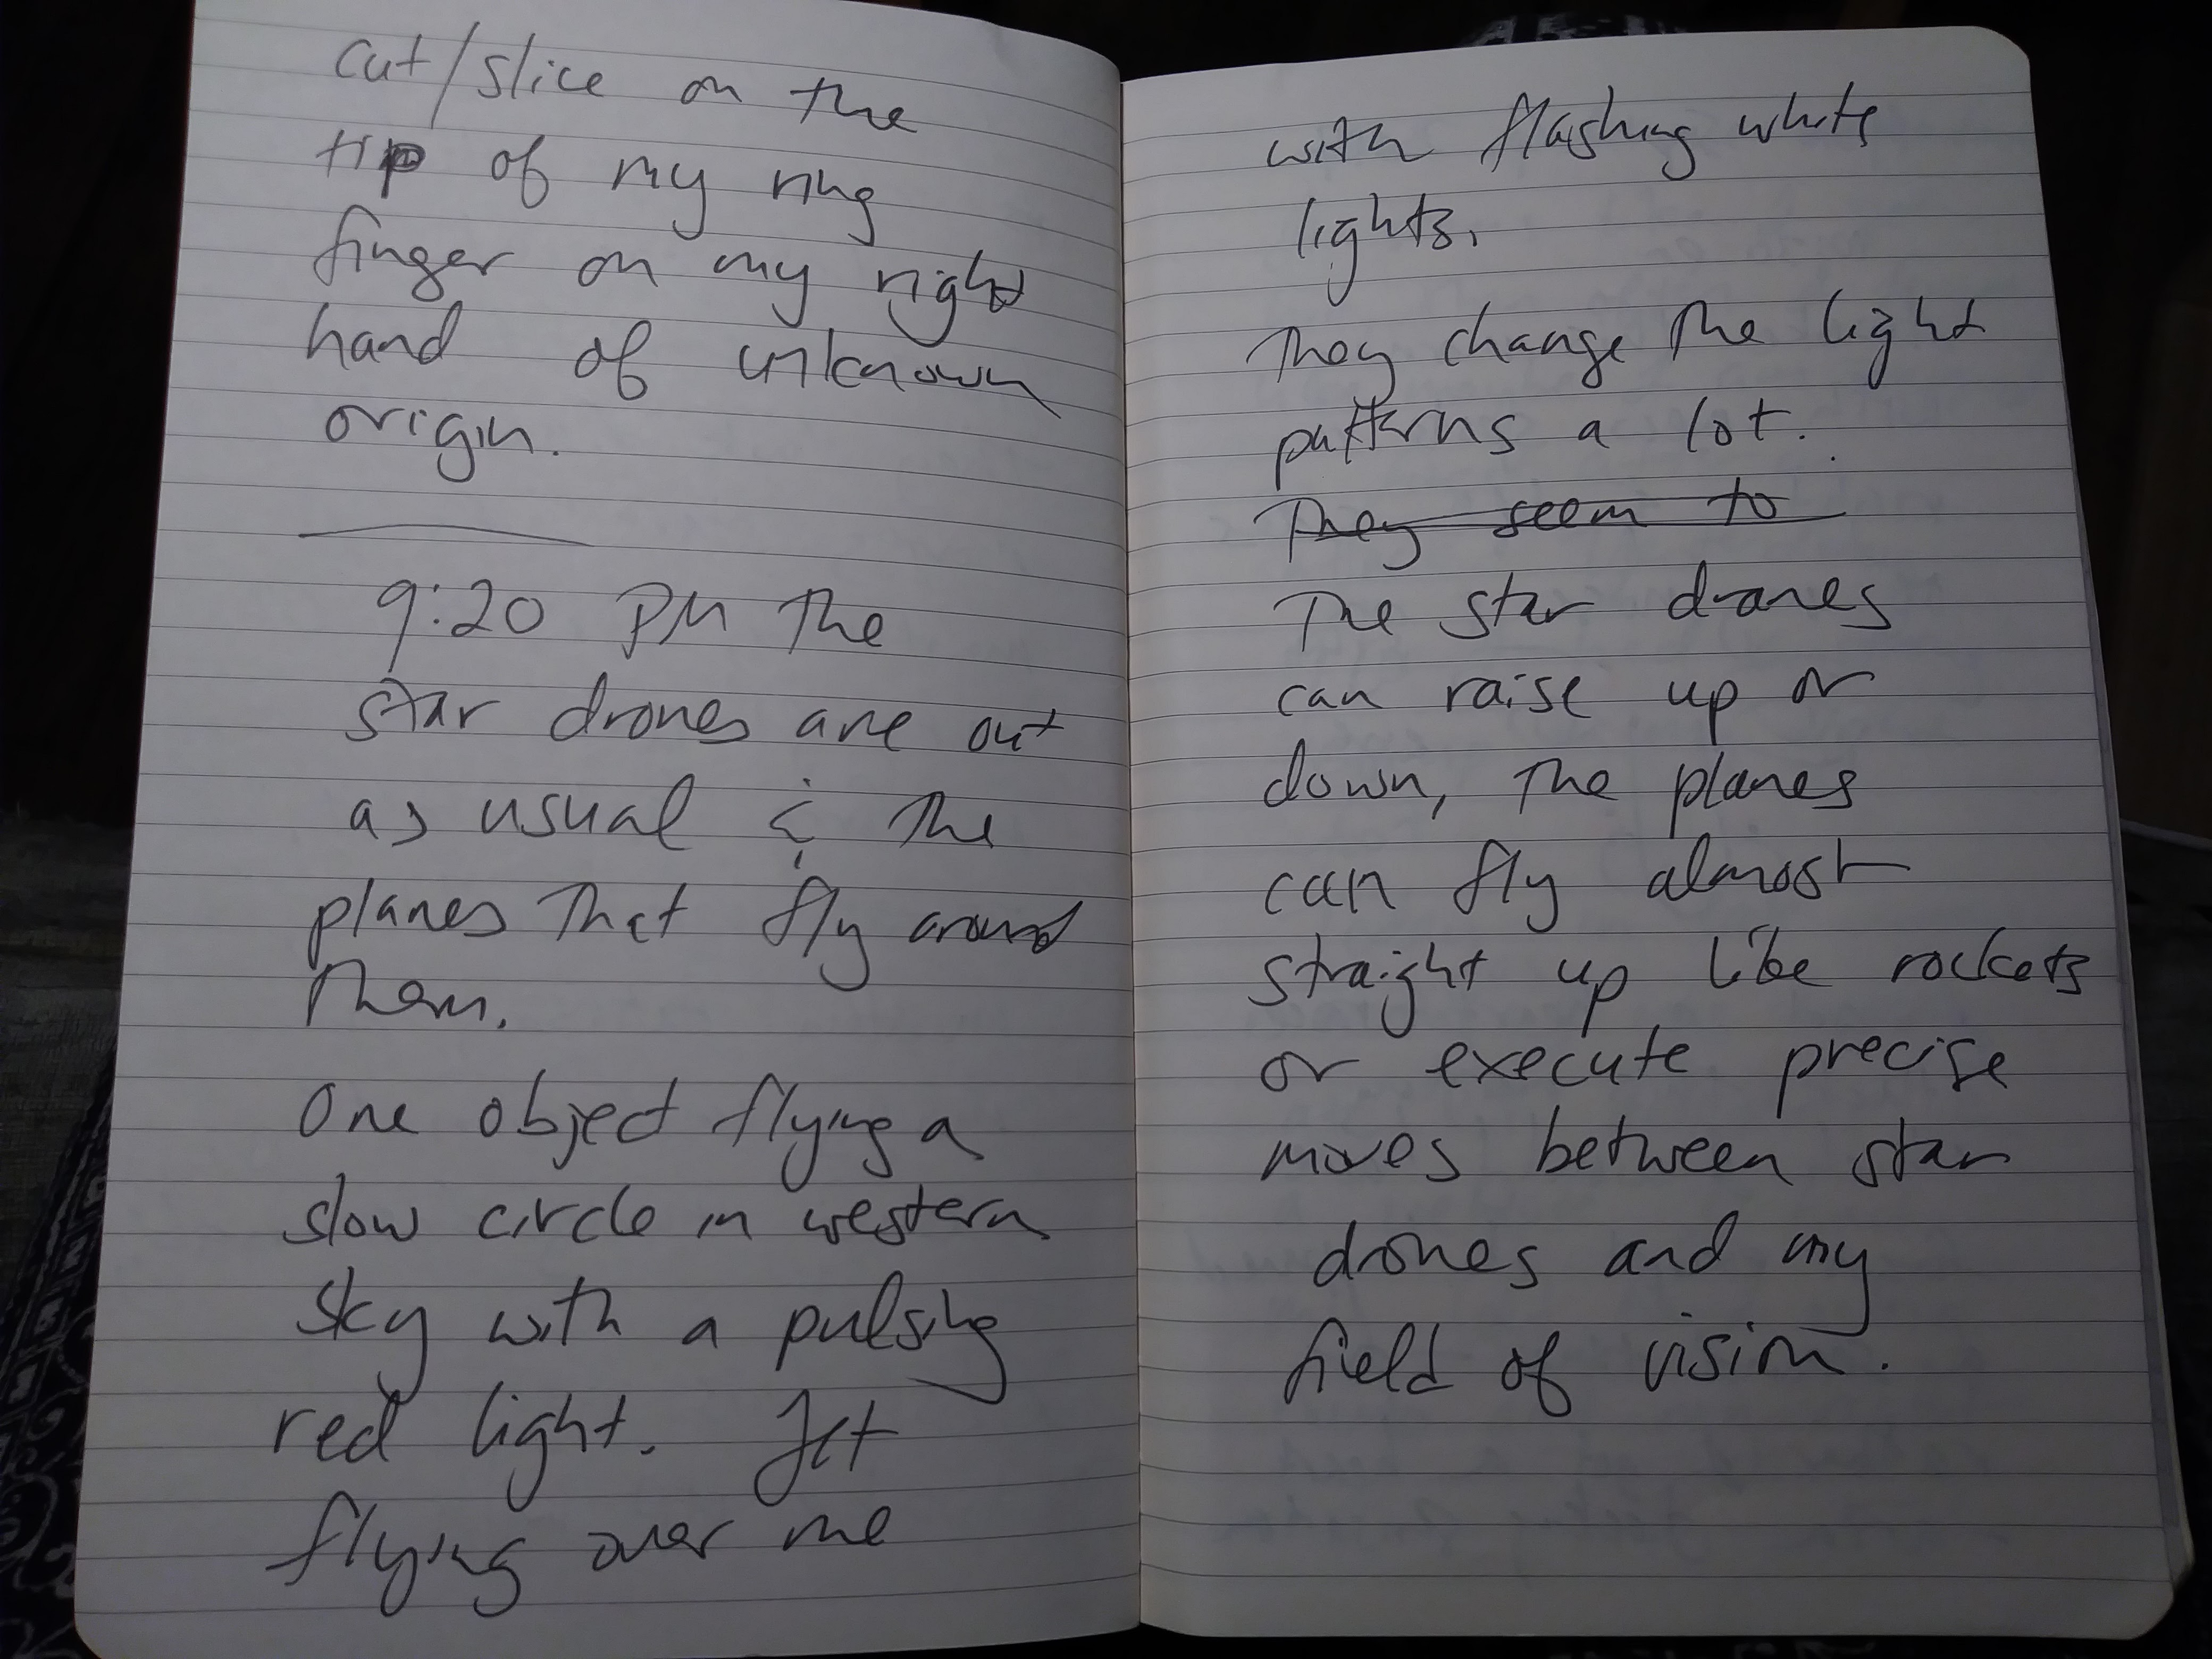 cut/slice on the
tip of my ring
finger on my right
hand of unknown
origin.
9:20 PM The
star drones are out
as usual & the
planes that fly around
them.
One object flying a
slow circle in western
sky with a pulsing
red light. Jet
flying over me
with flashing white
lights.
They change the light
patterns a lot.
They seem to
The star drones
can raise up or
down, the planes
can fly almost
straight up like rockets
or execute precise
moves between star
drones and my
field of vision.